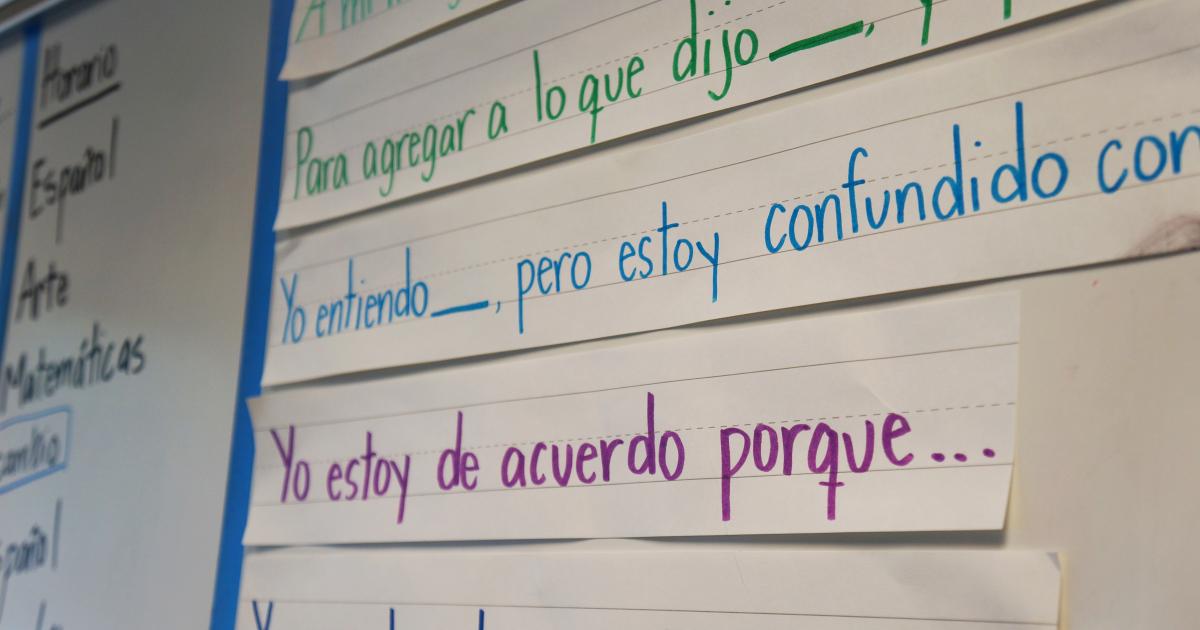 Horario
Español
Arte
Matemáticas
A mi
Para agregar a lo que dijo___, y
Yo entiendo___, pero estoy confundido con
Yo estoy de acuerdo porque...